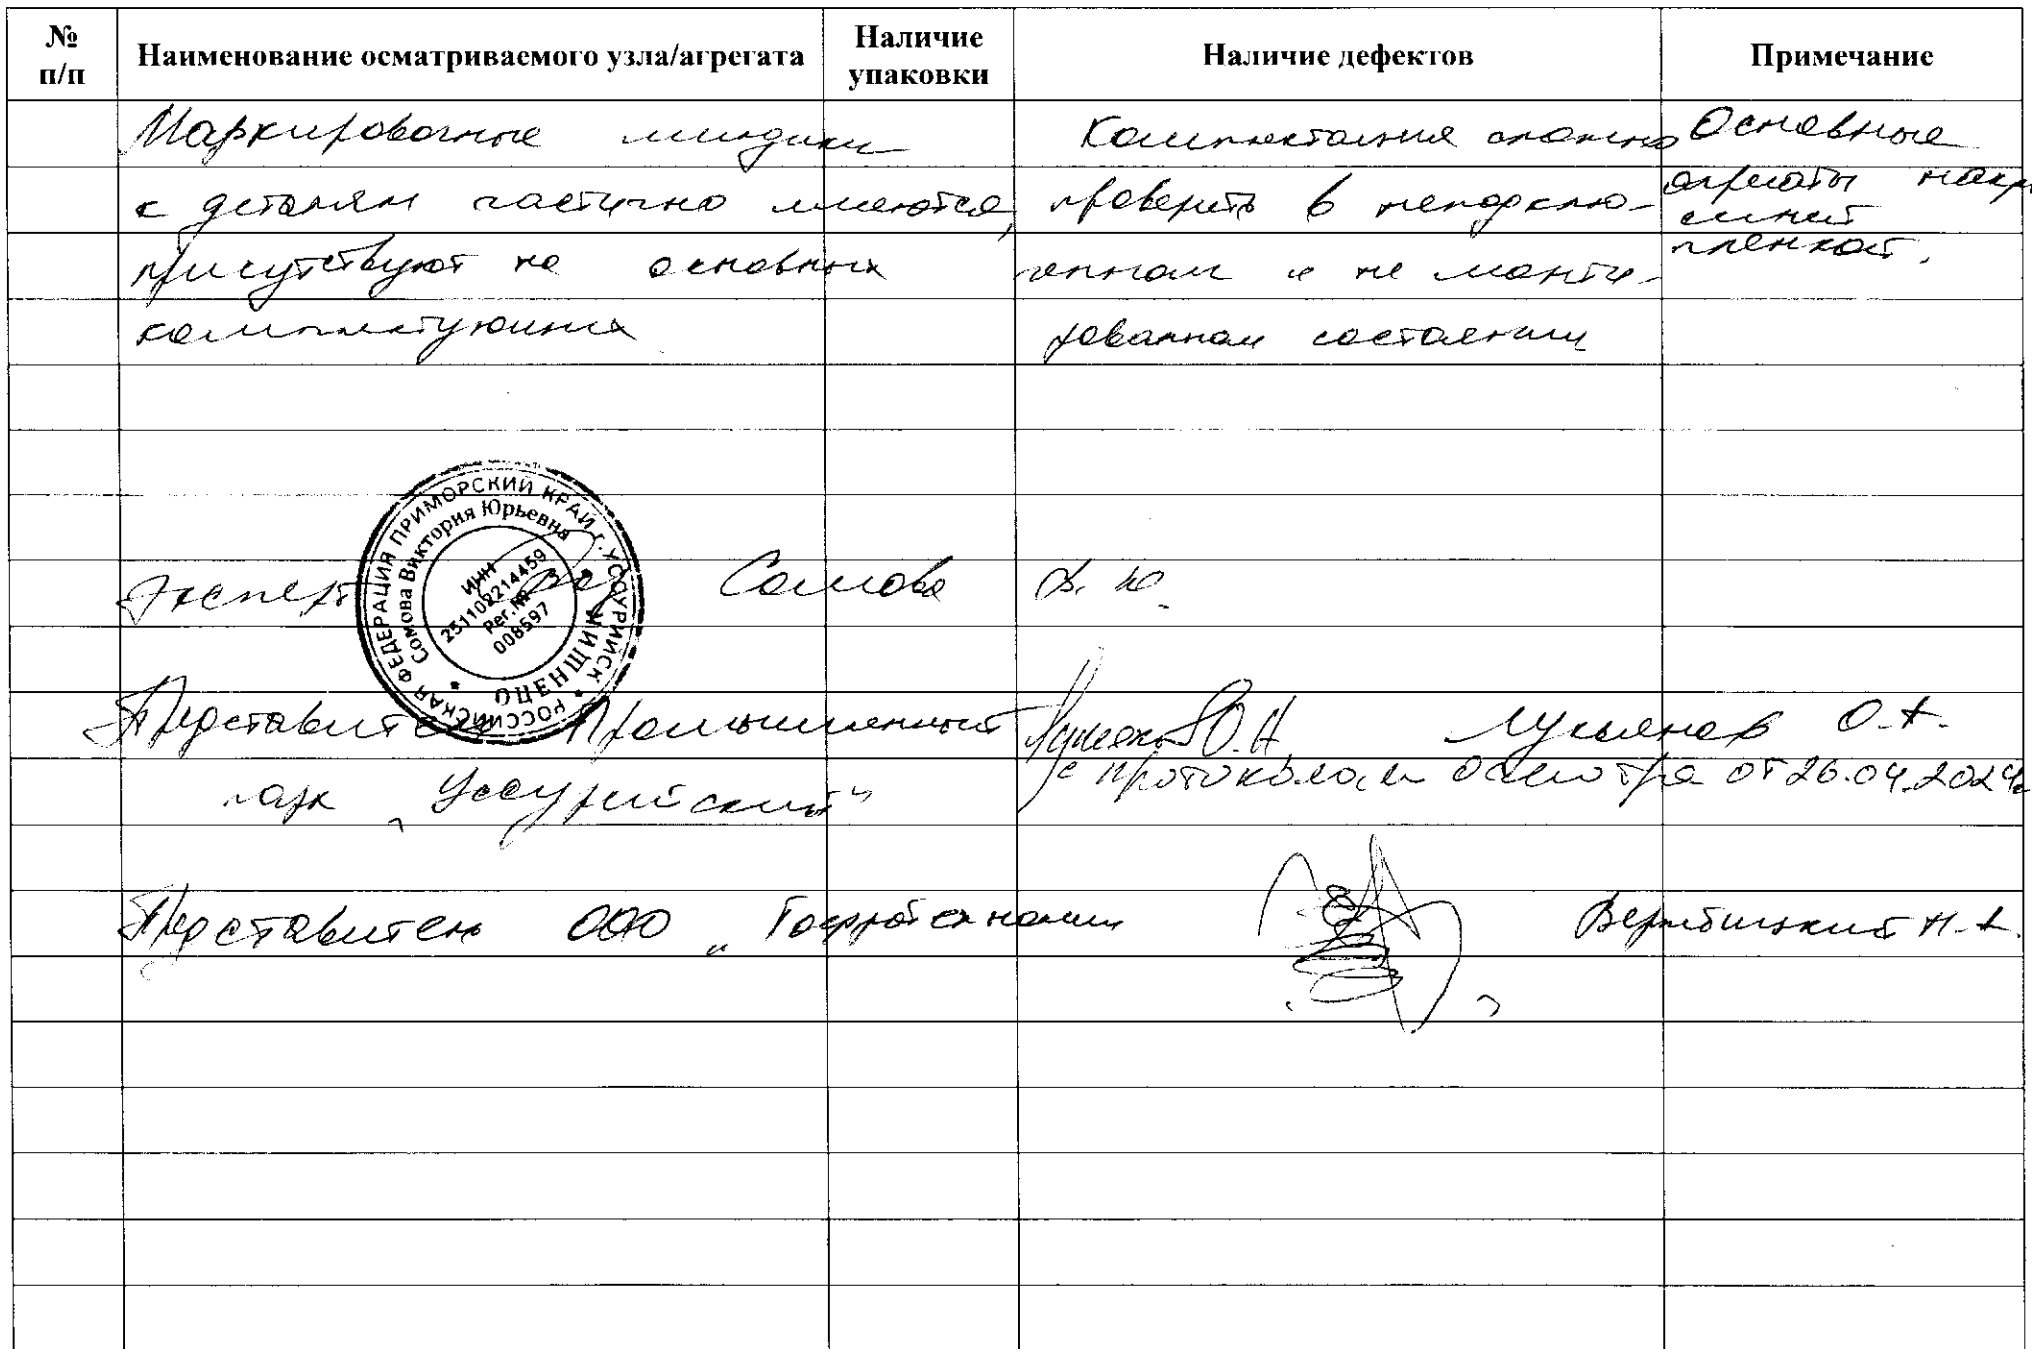 № п/п
Наименование осматриваемого узла/агрегата
Наличие упаковки
Наличие дефектов
Примечание
Маркировочные шильдики
к деталям частично имеются,
присутствуют на основных
комплектующих
Комплектация сложно
проверить в неподклю-
ченном и не монти-
рованном состоянии
Основные
агрегаты накр
синей
пленкой.
РОССИЙСКАЯ ФЕДЕРАЦИЯ ПРИМОРСКИЙ КРАЙ г. УССУРИЙСК
Сомова Виктория Юрьевна
ОЦЕНЩИК
ИНН
251102214459
Рег.№
008597
Эксперт Сомова В. Ю.
Представитель Промышленный Лукьянов О.А. Лукьянов О.А.
парк "Уссурийский"
с протоколом осмотра от 26.04.2024г
Представитель ООО "
Вербицкий Н.А.